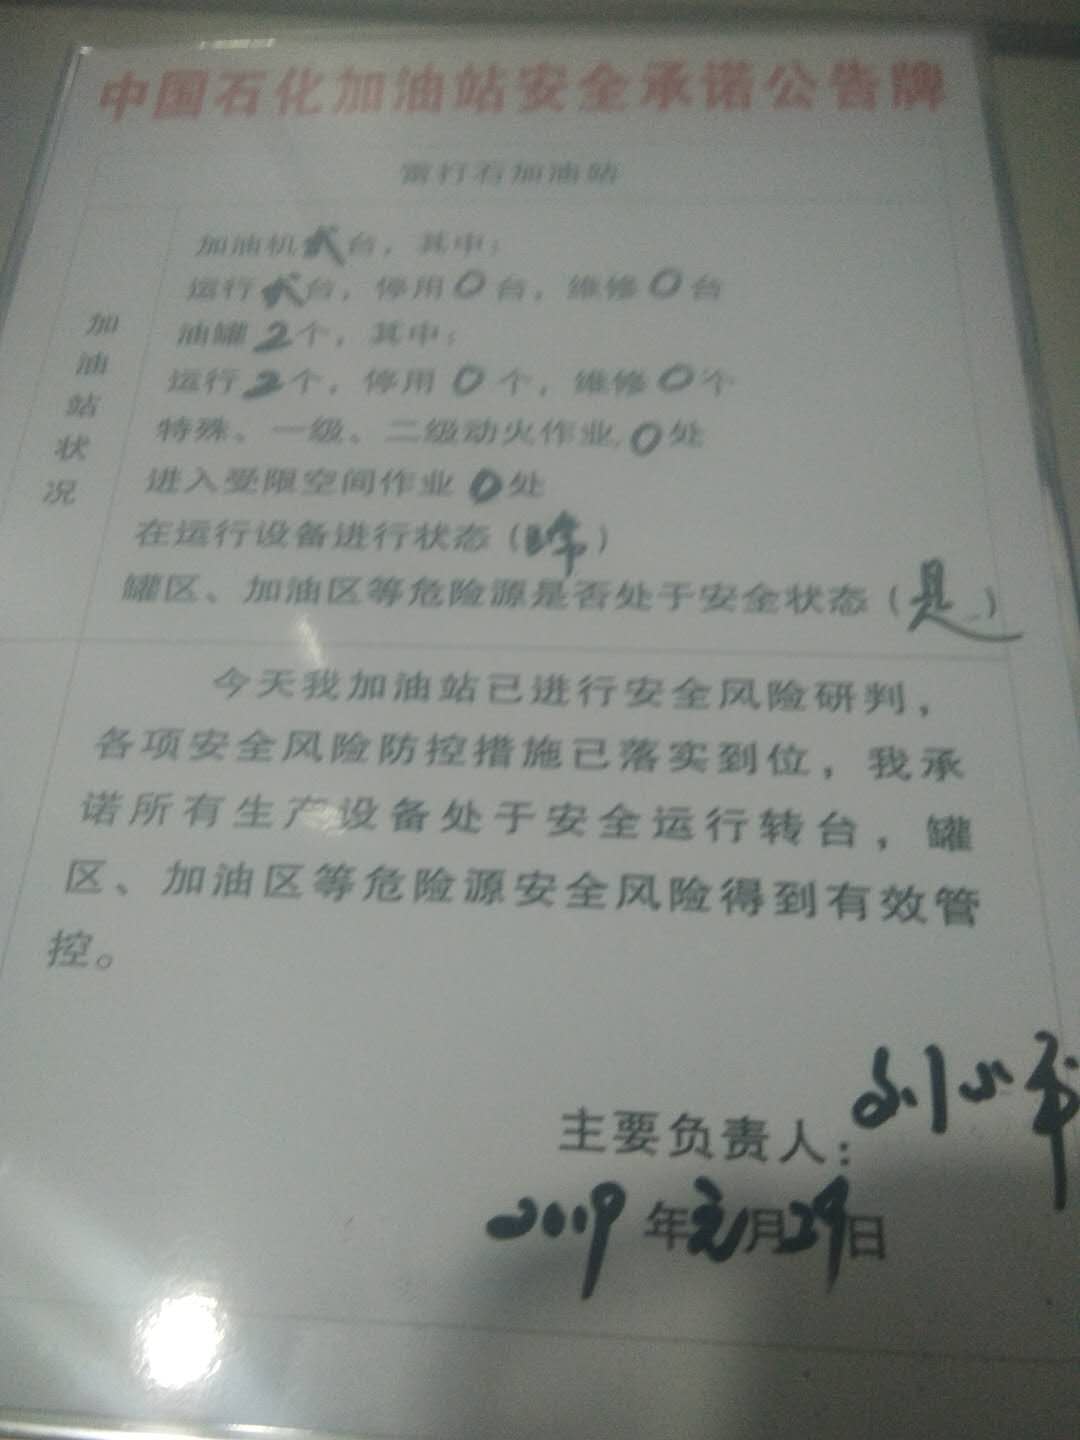 中国石化加油站安全承诺公告牌
雷打石加油站
加油站状况
加油机弍台，其中：
运行弍台，停用0台，维修0台
油罐2个，其中：
运行2个，停用0个，维修0个
特殊、一级、二级动火作业，0处
进入受限空间作业0处
在运行设备进行状态（正常）
罐区、加油区等危险源是否处于安全状态（是）
今天我加油站已进行安全风险研判，
各项安全风险防控措施已落实到位，我承
诺所有生产设备处于安全运行转台，罐
区、加油区等危险源安全风险得到有效管
控。
主要负责人：刘小
2019年元月29日